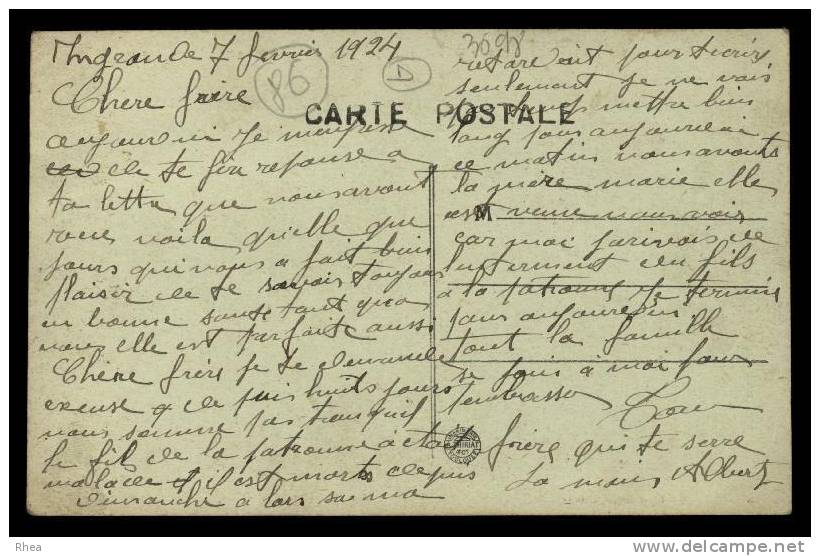 Ingrande 7 fevrier 1924
3098
86
D
Chere frère
CARTE POSTALE
aujourdui je
de te fair reponse a
ta lettre que nous avont
recu voila quelle que
jours qui nous a fait bien
plaisir de te savoir toujours
en bonne sante tant qua
nous elle est parfaite aussi
Chère frère je te demande
excuse que depuis huits jours
nous somme pas tranquil
le fils de la patronne a
malade et il est morts depuis
dimanche a lors sa ma
retare et pour tecrir
seulement je ne vais
mettre bien
long pour aujourdui
ce matin nous avonts
la mère marie elle
est venue nous voir
M
car moi de
lenterment du fils
a la patronne je termine
pour aujourdui
tout la famille
se a moi pour
tembrasser Ton
frère qui te serre
La main Albert
Rhea
www.delcampe.net